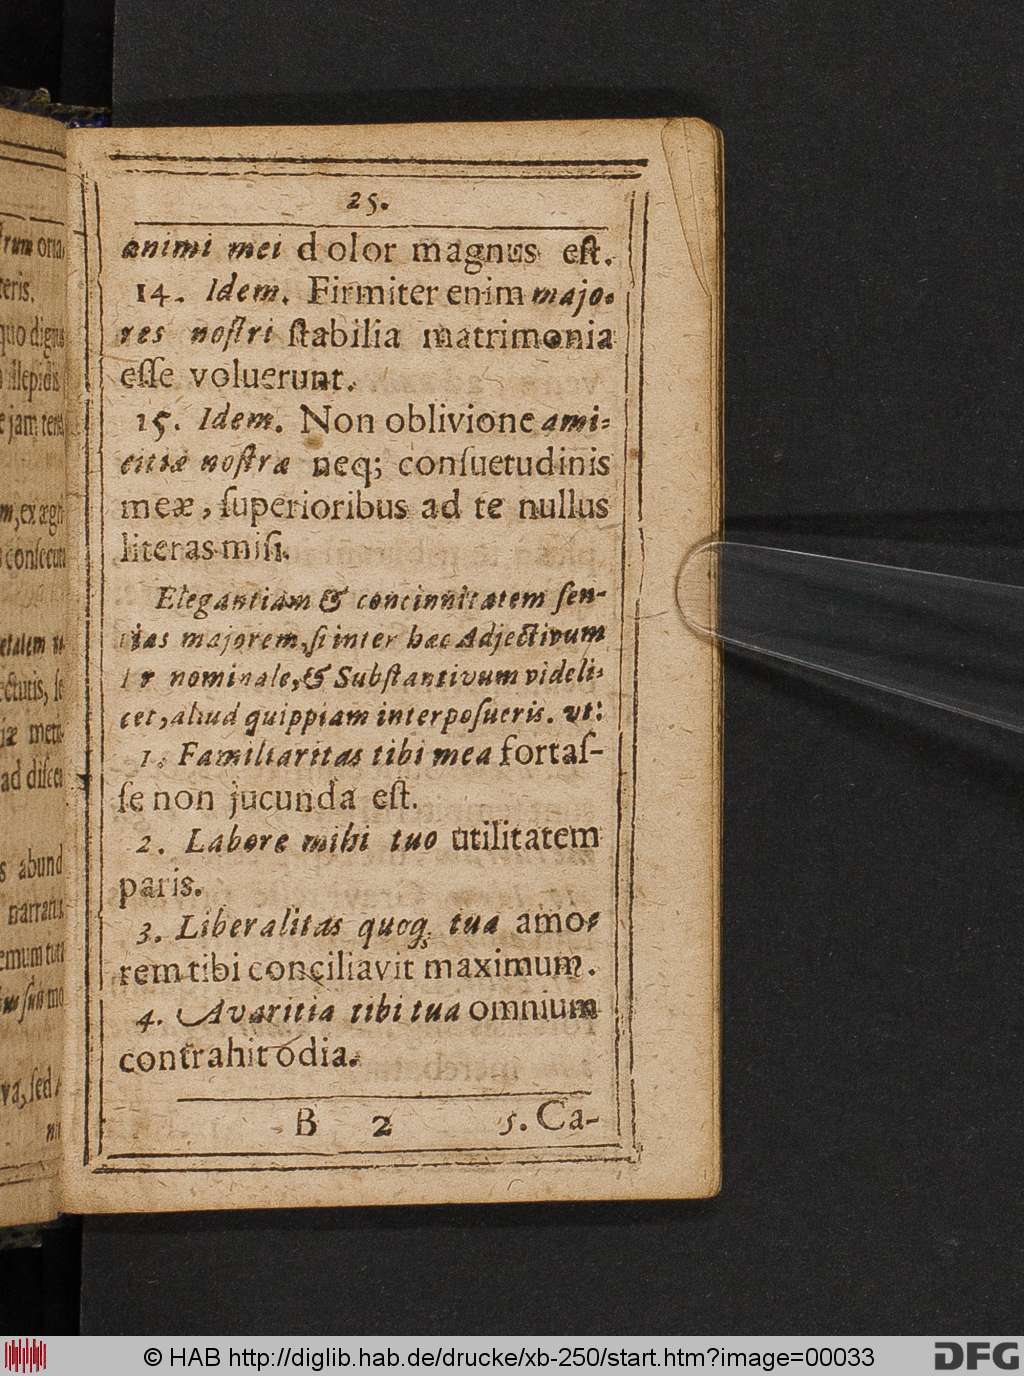 25.
animi mei dolor magnus est.
14. Idem. Firmiter enim majo-
res nostri stabilia matrimonia
esse voluerunt.
15. Idem. Non oblivione ami-
citiæ nostræ neq; consuetudinis
meæ, superioribus ad te nullus
literas misi.
Elegantiam & concinnitatem sen-
majorem, si inter hæc Adjectivum
nominale, & Substantivum videli-
cet, aliud quippiam interposueris. ut:
1. Familiaritas tibi mea fortas-
se non jucunda est.
2. Labore mihi tuo utilitatem
paris.
3. Liberalitas quoq; tua amo-
rem tibi conciliavit maximum.
4. Avaritia tibi tua omnium
contrahit odia.
B 2 5. Ca-
© HAB http://diglib.hab.de/drucke/xb-250/start.htm?image=00033
DFG